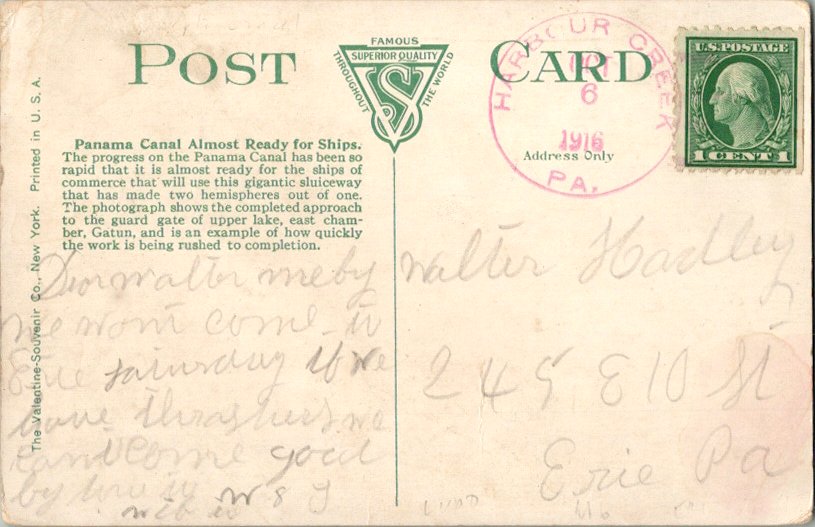 POST CARD
FAMOUS
SUPERIOR QUALITY
THROUGHOUT THE WORLD
VS
HARBOUR CREEK
OCT
6
1916
PA.
U.S. POSTAGE
1 CENT 1
Address Only
Panama Canal Almost Ready for Ships.
The progress on the Panama Canal has been so
rapid that it is almost ready for the ships of
commerce that will use this gigantic sluiceway
that has made two hemispheres out of one.
The photograph shows the completed approach
to the guard gate of upper lake, east cham-
ber, Gatun, and is an example of how quickly
the work is being rushed to completion.
The Valentine-Souvenir Co., New York. Printed in U. S. A.
Dear walter meby
we wont come to
Erie saturday if we
have thrashers we
cant come good
by
Walter Hadley
245 E 10 St
Erie Pa